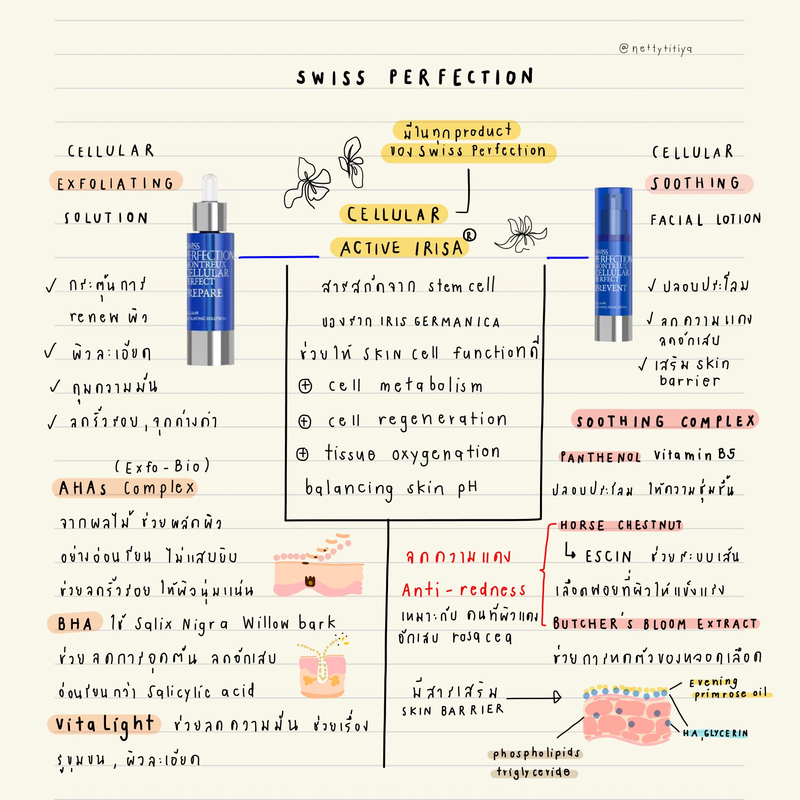 @nettytitiya
SWISS PERFECTION
มีในทุก product
ของ Swiss Perfection
CELLULAR
ACTIVE IRISA®
สารสกัดจาก stem cell
ของราก IRIS GERMANICA
ช่วยให้ SKIN cell functionดี
⊕ cell metabolism
⊕ cell regeneration
⊕ tissue oxygenation
balancing skin pH
CELLULAR
EXFOLIATING
SOLUTION
SWISS
PERFECTION
MONTREUX
CELLULAR
PERFECT
PREPARE
✓ กระตุ้นการ
renew ผิว
✓ ผิวละเอียด
✓ คุมความมัน
✓ ลดริ้วรอย, จุดด่างดำ
(Exfo-Bio)
AHAs Complex
จากผลไม้ ช่วยผลัดผิว
อย่างอ่อนโยน ไม่แสบยิบ
ช่วยลดริ้วรอย ให้ผิวนุ่มแน่น
BHA ใช้ Salix Nigra Willow bark
ช่วยลดการอุดตัน ลดอักเสบ
อ่อนโยนกว่า Salicylic acid
Vitalight ช่วยลดความมัน ช่วยเรื่อง
รูขุมขน, ผิวละเอียด
CELLULAR
SOOTHING
FACIAL LOTION
SWISS
PERFECTION
MONTREUX
CELLULAR
PERFECT
PREVENT
✓ ปลอบประโลม
✓ ลดความแดง
ลดอักเสบ
✓ เสริม skin
barrier
SOOTHING COMPLEX
PANTHENOL Vitamin B5
ปลอบประโลม ให้ความชุ่มชื้น
HORSE CHESTNUT
↳ ESCIN ช่วยระบบเส้น
เลือดฝอยที่ผิวให้แข็งแรง
BUTCHER'S BLOOM EXTRACT
ช่วยการหดตัวของหลอดเลือด
ลดความแดง
Anti-redness
เหมาะกับ คนที่ผิวแดง
อักเสบ rosacea
มีสารเสริม
SKIN BARRIER
Evening
primrose oil
HA, GLYCERIN
phospholipids
triglyceride